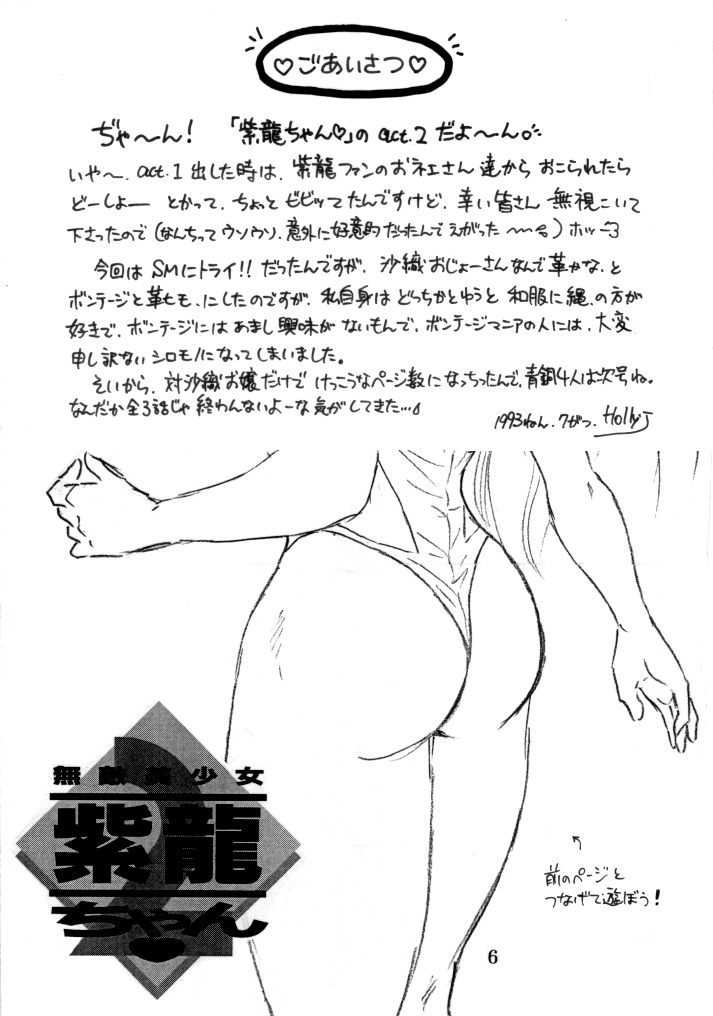 ♡ごあいさつ♡
ぢゃ〜ん！「紫龍ちゃん♡」の act.2 だよ〜ん。
いや〜、act.1 出した時は、紫龍ファンのおネエさん達からおこられたら
どーしよー とかって、ちょっとビビッてたんですけど、幸い皆さん無視こいて
下さったので（なんちってウソウソ、意外に好意的だったんでえがった〜〜）ホッ
今回はSMにトライ!! だったんですが、沙織おじょーさんなんで革かな、と
ボンテージと革ヒモ、にしたのですが、私自身はどっちかとゆうと和服に縄、の方が
好きで、ボンテージにはあまし興味がないもんで、ボンテージマニアの人には、大変
申し訳ないシロモノになってしまいました。
そいから、対沙織お嬢だけでけっこうなページ数になっちったんで、青銅4人は次号ね。
なんだか全3話じゃ終わんないよーな気がしてきた…
1993ねん.7がつ. Holly J
無敵美少女
紫龍
ちゃん
2
前のページと
つなげて遊ぼう！
6